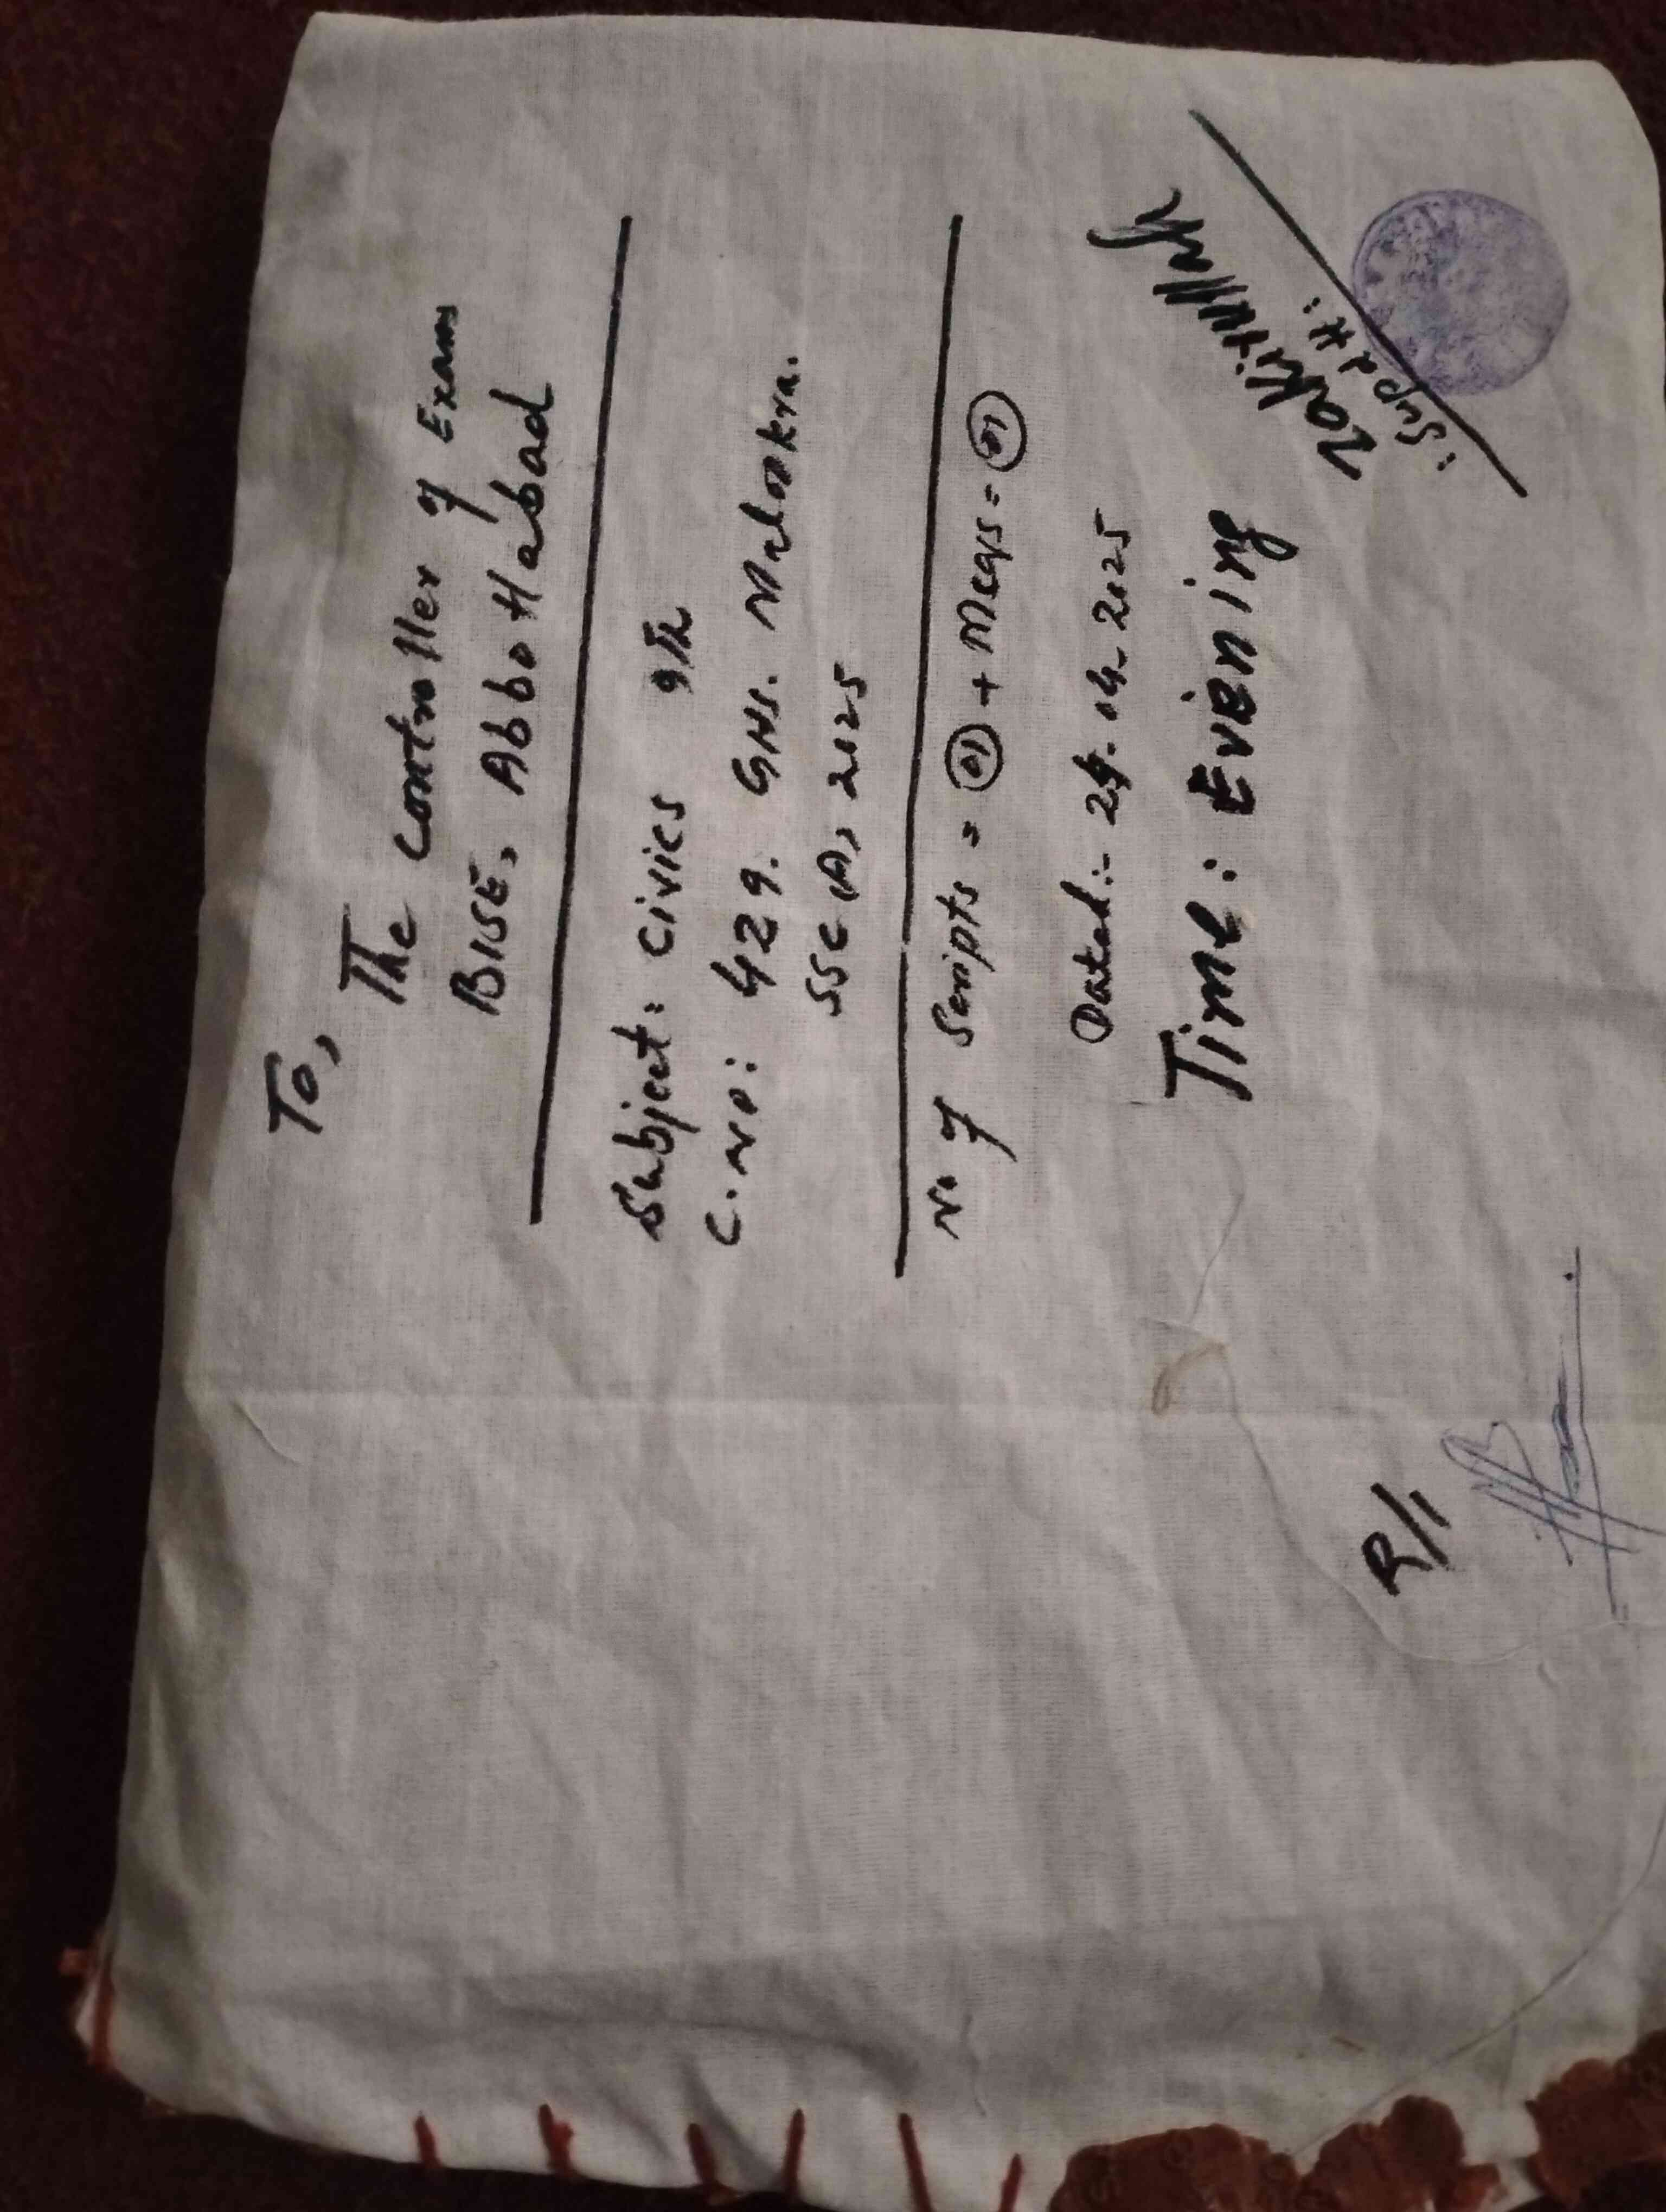 To,
The Controller of Exams
BISE, Abbottabad
Subject: Civics 9th
C.No: 429. GHS. Malookra.
SSC(A), 2025
No of Scripts = 01 + Mcqs = 01
Dated:- 24.04.2025
Time: Evening
Zakirullah
Supdtt:
R/I